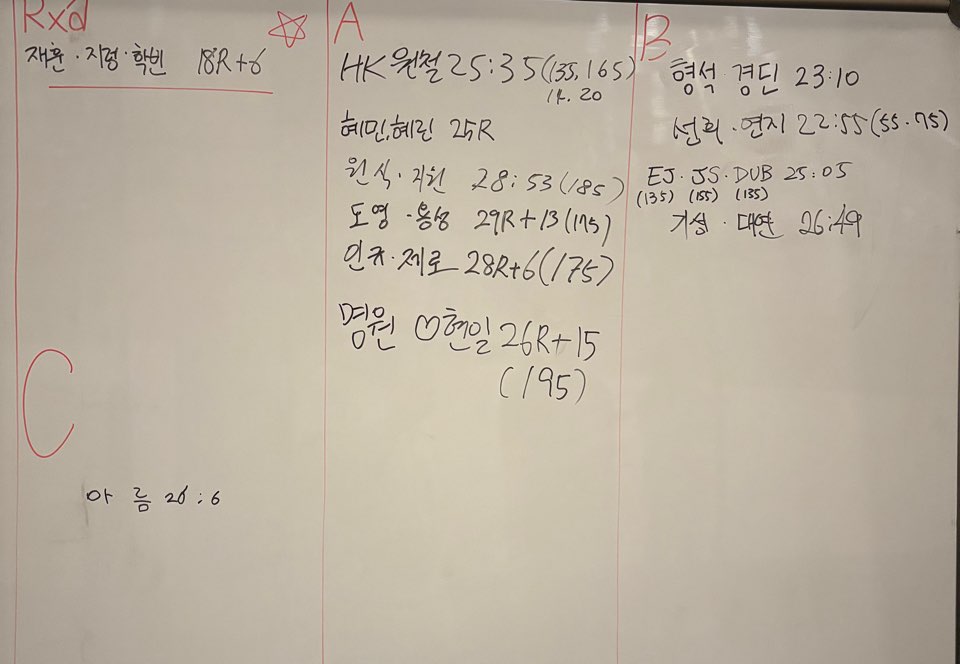 Rx'd
재훈·지정·학빈 18R+6
A
HK 원철 25:35(135, 165)
14. 20
혜민, 혜린 25R
원식·지원 28:53(185)
도영·용성 29R+13(175)
인규·제로 28R+6(175)
명원 ♡현일 26R+15
(195)
B
형석 경민 23:10
선희·연지 22:55(55·75)
EJ·JS·DUB 25:05
(135) (155) (135)
기성·대연 26:49
C
아름 26:6